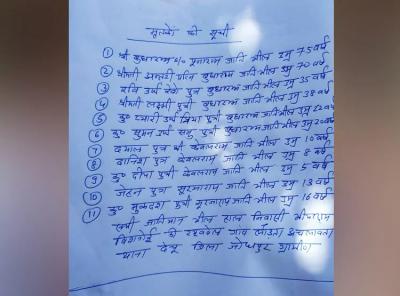 मृतकों की सूची
① श्री बुधाराम S/o जाति भील उम्र 75 वर्ष
② श्रीमती पत्नि बुधाराम जाति भील उम्र 70 वर्ष
③ रवि उर्फ पुत्र बुधाराम जाति भील उम्र 35 वर्ष
④ श्रीमती लक्ष्मी पुत्री बुधाराम जाति भील उम्र 38 वर्ष
⑤ कु० प्यारी उर्फ प्रिया पुत्री बुधाराम जाति भील उम्र 22 वर्ष
⑥ कु० सुमन उर्फ पुत्री बुधाराम जाति भील उम्र 20 वर्ष
⑦ दयाल पुत्र श्री केवलराम जाति भील उम्र 10 वर्ष
⑧ दानिश पुत्र केवलराम जाति भील उम्र 8 वर्ष
⑨ कु० दीया पुत्री केवलराम जाति भील उम्र 5 वर्ष
⑩ पुत्र सुरजाराम जाति भील उम्र 13 वर्ष
⑪ कु० मुकदश पुत्री सुरजाराम जाति भील उम्र 16 वर्ष
जातियान भील हाल निवासी
गांव लोड़ता अचलावता
थाना देचू जिला जोधपुर ग्रामीण